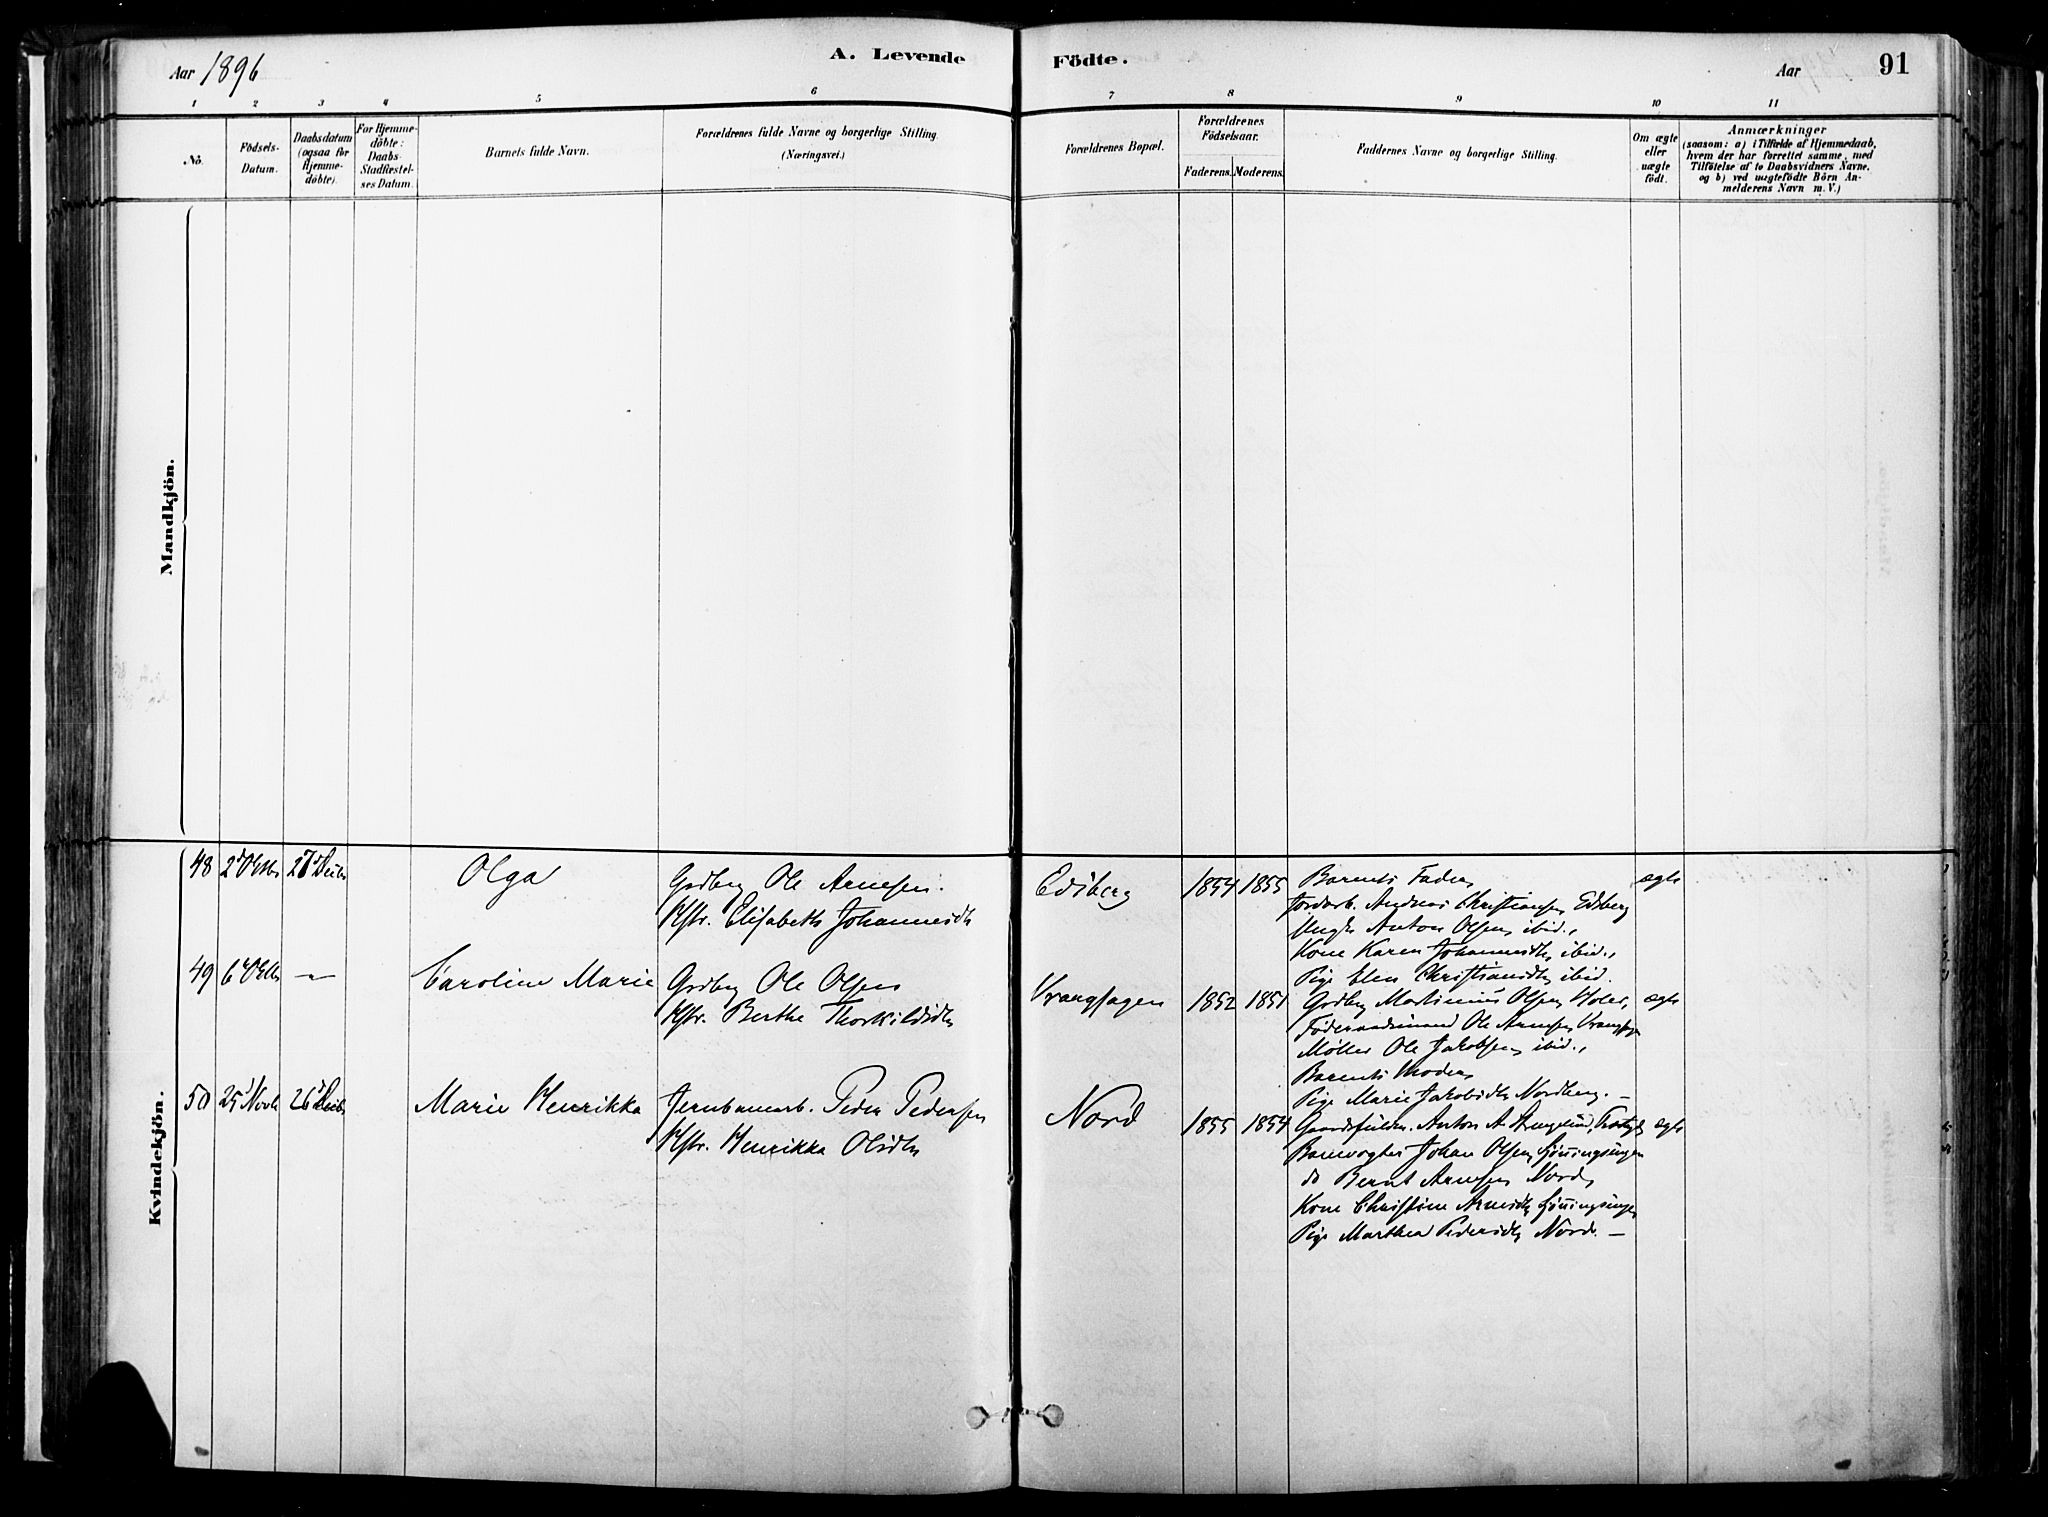 Aar 1896
A. Levende Födte.
Aar
91
1 2 3 4 5 6 7 8 9 10 11
No.
Födsels-
Datum.
Daabsdatum
(ogsaa for
Hjemme-
döbte).
For Hjemme-
döbte:
Daabs-
Stadfæstel-
ses Datum.
Barnets fulde Navn.
Forældrenes fulde Navne og borgerlige Stilling.
(Næringsvei.)
Forældrenes Bopæl.
Forældrenes
Födselsaar.
Faderens. Moderens.
Faddernes Navne og borgerlige Stilling.
Om ægte
eller
uægte
födt.
Anmærkninger
(saasom: a) i Tilfælde af Hjemmedaab,
hvem der har forrettet samme, med
Tilföielse af to Daabsvidners Navne,
og b) ved uægtefödte Börn An-
melderens Navn m. V.)
Mandkjön.
Kvindekjön.
48
Olga
Ole Arnesen.
Elisabeth Johannesdt
Edsberg
1854 1855
Barnets Fader,
Jordarb. Andreas Christiansen Edsberg
Anton Olsen ibid.,
Kone Karen Johannesdt ibid.,
Pige Elen Christiansdt ibid.
ægte
49
"
Caroline Marie
Ole Olsen
Berthe Thorkildsdt
Vrangsagen
1852 1851
Martinius Olsen Holer,
Føderaadsmand Ole Arnesen
Møller Ole Jakobsen ibid.,
Barnets Moder,
Pige Marie Jakobsdt Nordberg. –
ægte
50 25 Novbr 26
Marie Henrikka
Jernbanearb. Peder Pedersen
Henrikka Olsdt
Nord
1855 1854
Anton A.
Banevogter Johan Olsen
do Bernt Arnesen Nord,
Kone Christine Arnesdt
Pige Marthea Pedersdt Nord. –
ægte